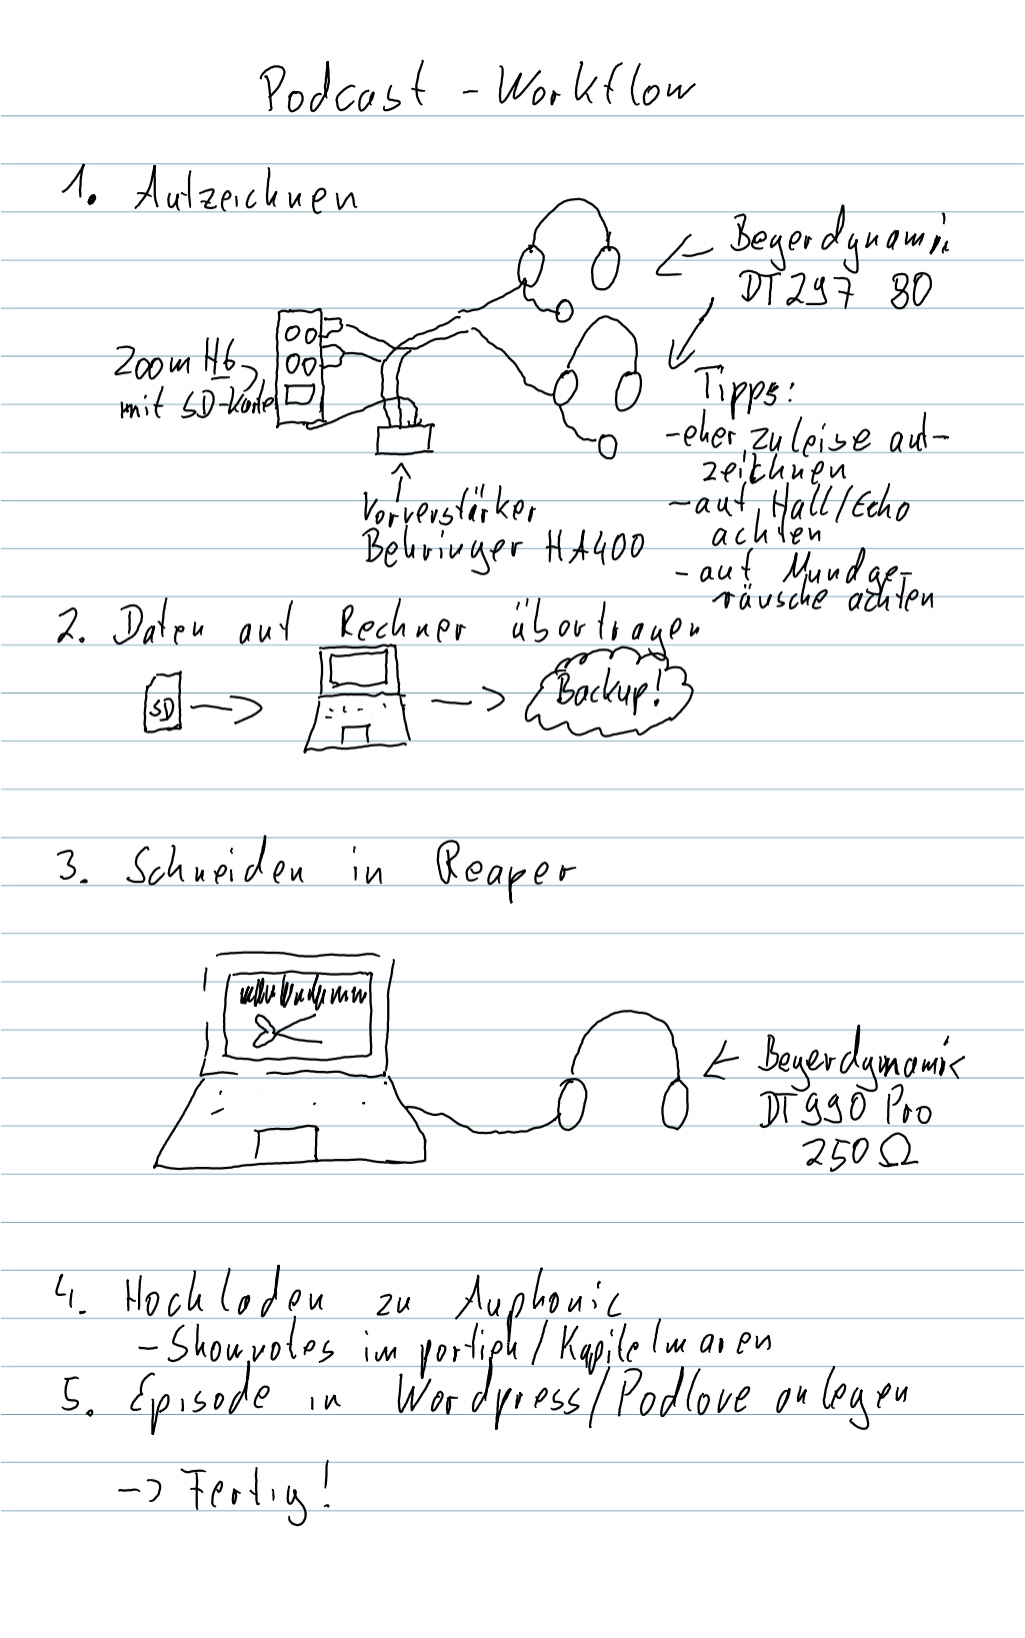 Podcast - Workflow
1. Aufzeichnen
Beyerdynamic
DT 297 80
Zoom H6
mit SD-Karte
Tipps:
- eher zu leise auf-
zeichnen
- auf Hall/Echo
achten
- auf Mundge-
räusche achten
Vorverstärker
Behringer HA400
2. Daten auf Rechner übertragen
SD
Backup!
3. Schneiden in Reaper
Beyerdynamic
DT 990 Pro
250 Ω
4. Hochladen zu Auphonic
- Shownotes im portieh / Kapitelmaren
5. Episode in Wordpress/Podlove anlegen
-> Fertig!